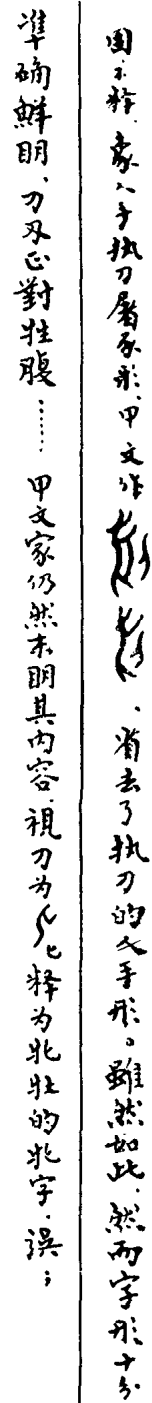 图示释，象人手执刀屠豕形，甲文作、省去了执刀的人手形。雖然如此、然而字形十分
準确鮮明、刀刃正對牲腹……甲文家仍然未明其内容，視刀为匕，释为牝牡的牝字，誤；